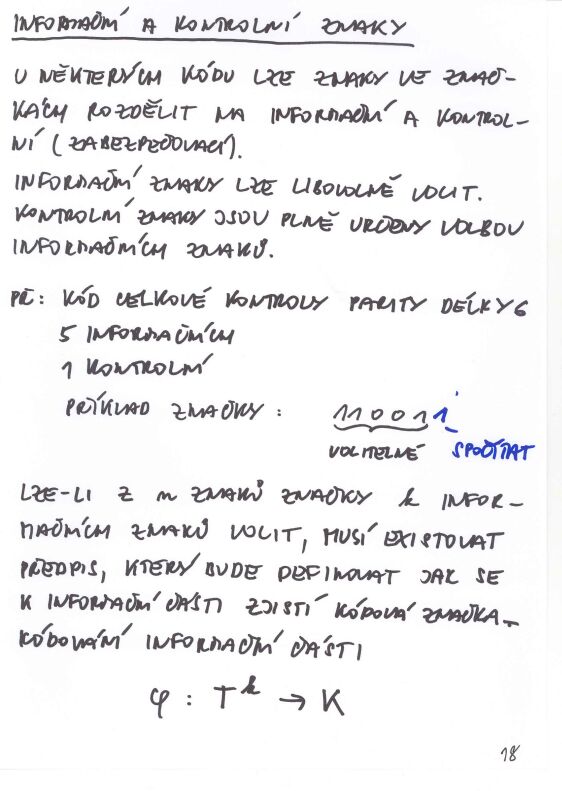 INFORMAČNÍ A KONTROLNÍ ZNAKY
U NĚKTERÝCH KÓDU LZE ZNAKY VE ZNAČ-
KÁCH ROZDĚLIT NA INFORMAČNÍ A KONTROL-
NÍ (ZABEZPEČOVACÍ).
INFORMAČNÍ ZNAKY LZE LIBOVOLNĚ VOLIT.
KONTROLNÍ ZNAKY JSOU PLNĚ URČENY VOLBOU
INFORMAČNÍCH ZNAKŮ.
PŘ: KÓD CELKOVÉ KONTROLY PARITY DÉLKY 6
5 INFORMAČNÍCH
1 KONTROLNÍ
PŘÍKLAD ZNAČKY: 110011
VOLITELNÉ SPOČÍTAT
LZE-LI Z n ZNAKŮ ZNAČKY k INFOR-
MAČNÍCH ZNAKŮ VOLIT, MUSÍ EXISTOVAT
PŘEDPIS, KTERÝ BUDE DEFINOVAT JAK SE
K INFORMAČNÍ ČÁSTI ZJISTÍ KÓDOVÁ ZNAČKA -
KÓDOVÁNÍ INFORMAČNÍ ČÁSTI
φ : T^k → K
18